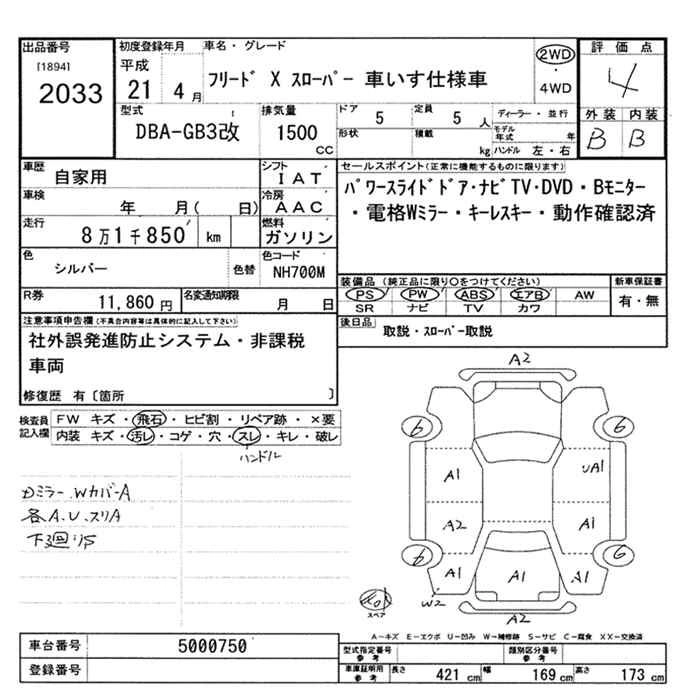 出品番号 初度登録年月 車名・グレード 評価点
[1894] 平成
2033 21 4月 フリード X スローパー 車いす仕様車 2WD・4WD 4
型式 排気量 ドア 定員 ディーラー・並行 外装 内装
DBA-GB3改 1500 CC 5 5人 モデル年式 年 B B
形状 積載 kg ハンドル 左・右
車歴 自家用 シフト IAT セールスポイント(正常に機能するものに限ります)
車検 年 月( 日) 冷房 AAC パワースライドドア・ナビTV・DVD・Bモニター
走行 8万1千850 km 燃料 ガソリン ・電格Wミラー・キーレスキー・動作確認済
色 シルバー 色替 色コード NH700M
R券 11,860円 名変通知期限 月 日
装備品(純正品に限り〇をつけてください) 新車保証書
PS PW ABS エアB AW 有・無
SR ナビ TV カワ
後日品 取説・スローパー取説
注意事項申告欄(不具合内容等は具体的に記入して下さい)
社外誤発進防止システム・非課税
車両
修復歴 有〔箇所 〕
検査員記入欄 FW キズ・飛石・ヒビ割・リペア跡・×要
内装 キズ・汚レ・コゲ・穴・スレ・キレ・破レ
ハンドル
Dミラー.WカバーA
各A.U.スリA
下廻りS
A2
6 6
A1 UA1
A2 A1
6 6
A1 A1 A1
W2
スペア
A2
A-キズ E-エクボ U-凹み W-補修跡 S-サビ C-腐食 XX-交換済
車台番号 5000750
登録番号
型式指定番号 参考 類別区分番号 参考
車庫証明用 参考 長さ 421 cm 幅 169 cm 高さ 173 cm